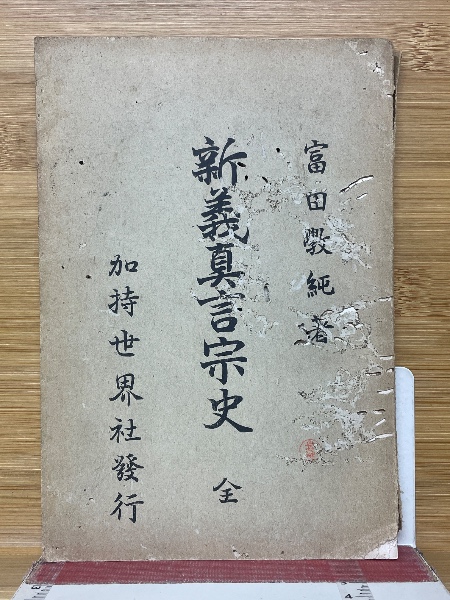 富田斆純著
新義真言宗史 全
加持世界社發行